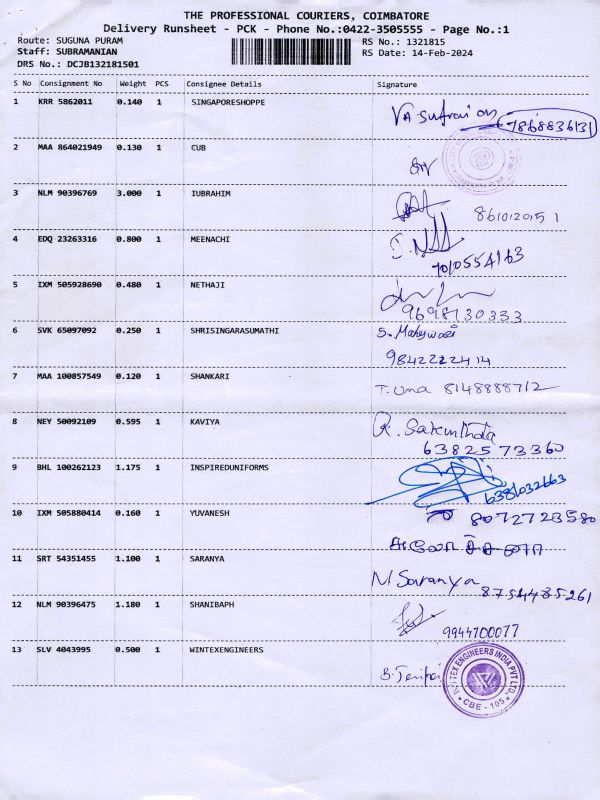 THE PROFESSIONAL COURIERS, COIMBATORE
Delivery Runsheet - PCK - Phone No.:0422-3505555 - Page No.:1
Route: SUGUNA PURAM RS No.: 1321815
Staff: SUBRAMANIAN RS Date: 14-Feb-2024
DRS No.: DCJB132181501
S No Consignment No Weight PCS Consignee Details Signature
1 KRR 5862011 0.140 1 SINGAPORESHOPPE
7868836131
2 MAA 864021949 0.130 1 CUB
3 NLM 90396769 3.000 1 IUBRAHIM
8610120151
4 EDQ 23263316 0.800 1 MEENACHI
7010554163
5 IXM 505928690 0.480 1 NETHAJI
9698130333
6 SVK 65097092 0.250 1 SHRISINGARASUMATHI
9842222414
7 MAA 100857549 0.120 1 SHANKARI T. Uma 8148888712
8 NEY 50092109 0.595 1 KAVIYA
6382573360
9 BHL 100262123 1.175 1 INSPIREDUNIFORMS
6381032663
10 IXM 505880414 0.160 1 YUVANESH 8072723580
11 SRT 54351455 1.100 1 SARANYA
N Saranya 8754485261
12 NLM 90396475 1.180 1 SHANIBAPH
9944700077
13 SLV 4043995 0.500 1 WINTEXENGINEERS
TEX ENGINEERS INDIA PVT LTD.
CBE - 105